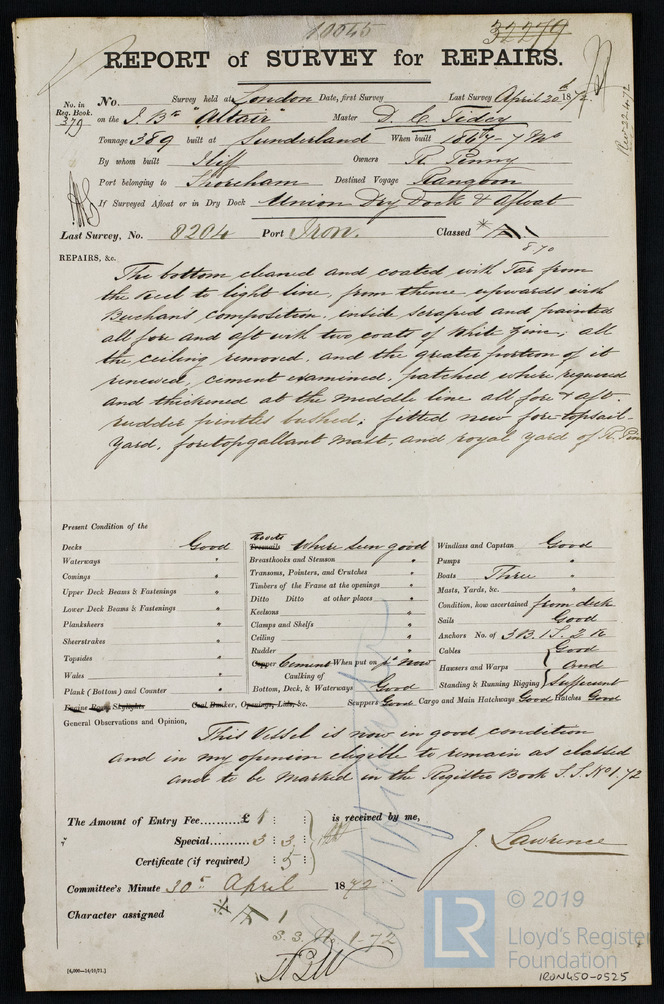 10045
32279
REPORT of SURVEY for REPAIRS.
No. in Reg. Book. 379
No. Survey held at London Date, first Survey Last Survey April 20th 1872
Rec 22.4.72
on the I. Bk "Altair" Master D. C. Tidey
Tonnage 389 built at Sunderland When built 1864 - 7 Mo
By whom built Iliff Owners R. Penny
Port belonging to Shoreham Destined Voyage Rangoon
If Surveyed Afloat or in Dry Dock Union Dry Dock & Afloat
Last Survey, No. 8204 Port Iron. Classed
8 70
REPAIRS, &c.
The bottom cleaned and coated with Tar from
the keel to light line, from thence upwards with
Buchan's composition, inside scraped and painted
all fore and aft with two coats of White Zinc, all
the ceiling removed, and the greater portion of it
renewed, cement examined, patched where required
and thickened at the middle line all fore & aft.
rudder pintles bushed; fitted new fore-topsail-
yard, foretopgallant mast, and royal yard of R. Pine
Present Condition of the
Decks Good
Waterways "
Comings "
Upper Deck Beams & Fastenings "
Lower Deck Beams & Fastenings "
Planksheers "
Sheerstrakes "
Topsides "
Wales "
Plank (Bottom) and Counter "
Engine Room Skylights
Rivets
Treenails Where seen good
Breasthooks and Stemson "
Transoms, Pointers, and Crutches "
Timbers of the Frame at the openings "
Ditto Ditto at other places "
Keelsons "
Clamps and Shelfs "
Ceiling "
Rudder "
Copper Cement When put on pt New
Caulking of
Bottom, Deck, & Waterways Good
Coal Bunker, Openings, Lids, &c.
Windlass and Capstan Good
Pumps "
Boats Three "
Masts, Yards, &c. "
Condition, how ascertained from deck
Sails Good
Anchors No. of 3 B. 1 S. 2 K
Cables Good
Hawsers and Warps And
Standing & Running Rigging Sufficient
Scuppers Good Cargo and Main Hatchways Good Hatches Good
General Observations and Opinion,
This Vessel is now in good condition
and in my opinion eligible to remain as classed
and to be Marked in the Register Book S.S. No 1. 72
The Amount of Entry Fee £ 1 : : is received by me,
Special 3 : 3 :
Certificate (if required) : 5 :
J. Lawrence
Committee's Minute 30th April 1872
Character assigned
1
S. S. No. 1-72
[6,000—14/10/71.]
LR
© 2019
Lloyd's Register
Foundation
IRON450-0525